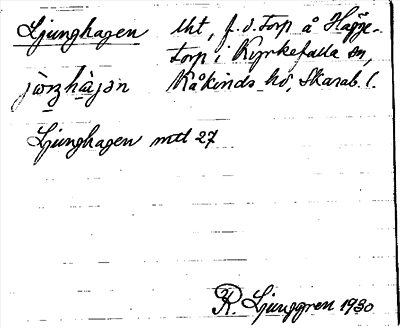 Ljunghagen lht, f.d. torp å Hägge-
torp i Kyrkefalla sn,
Kåkinds hd, Skarab. l.
Ljunghagen mtl 27
R. Ljunggren 1930